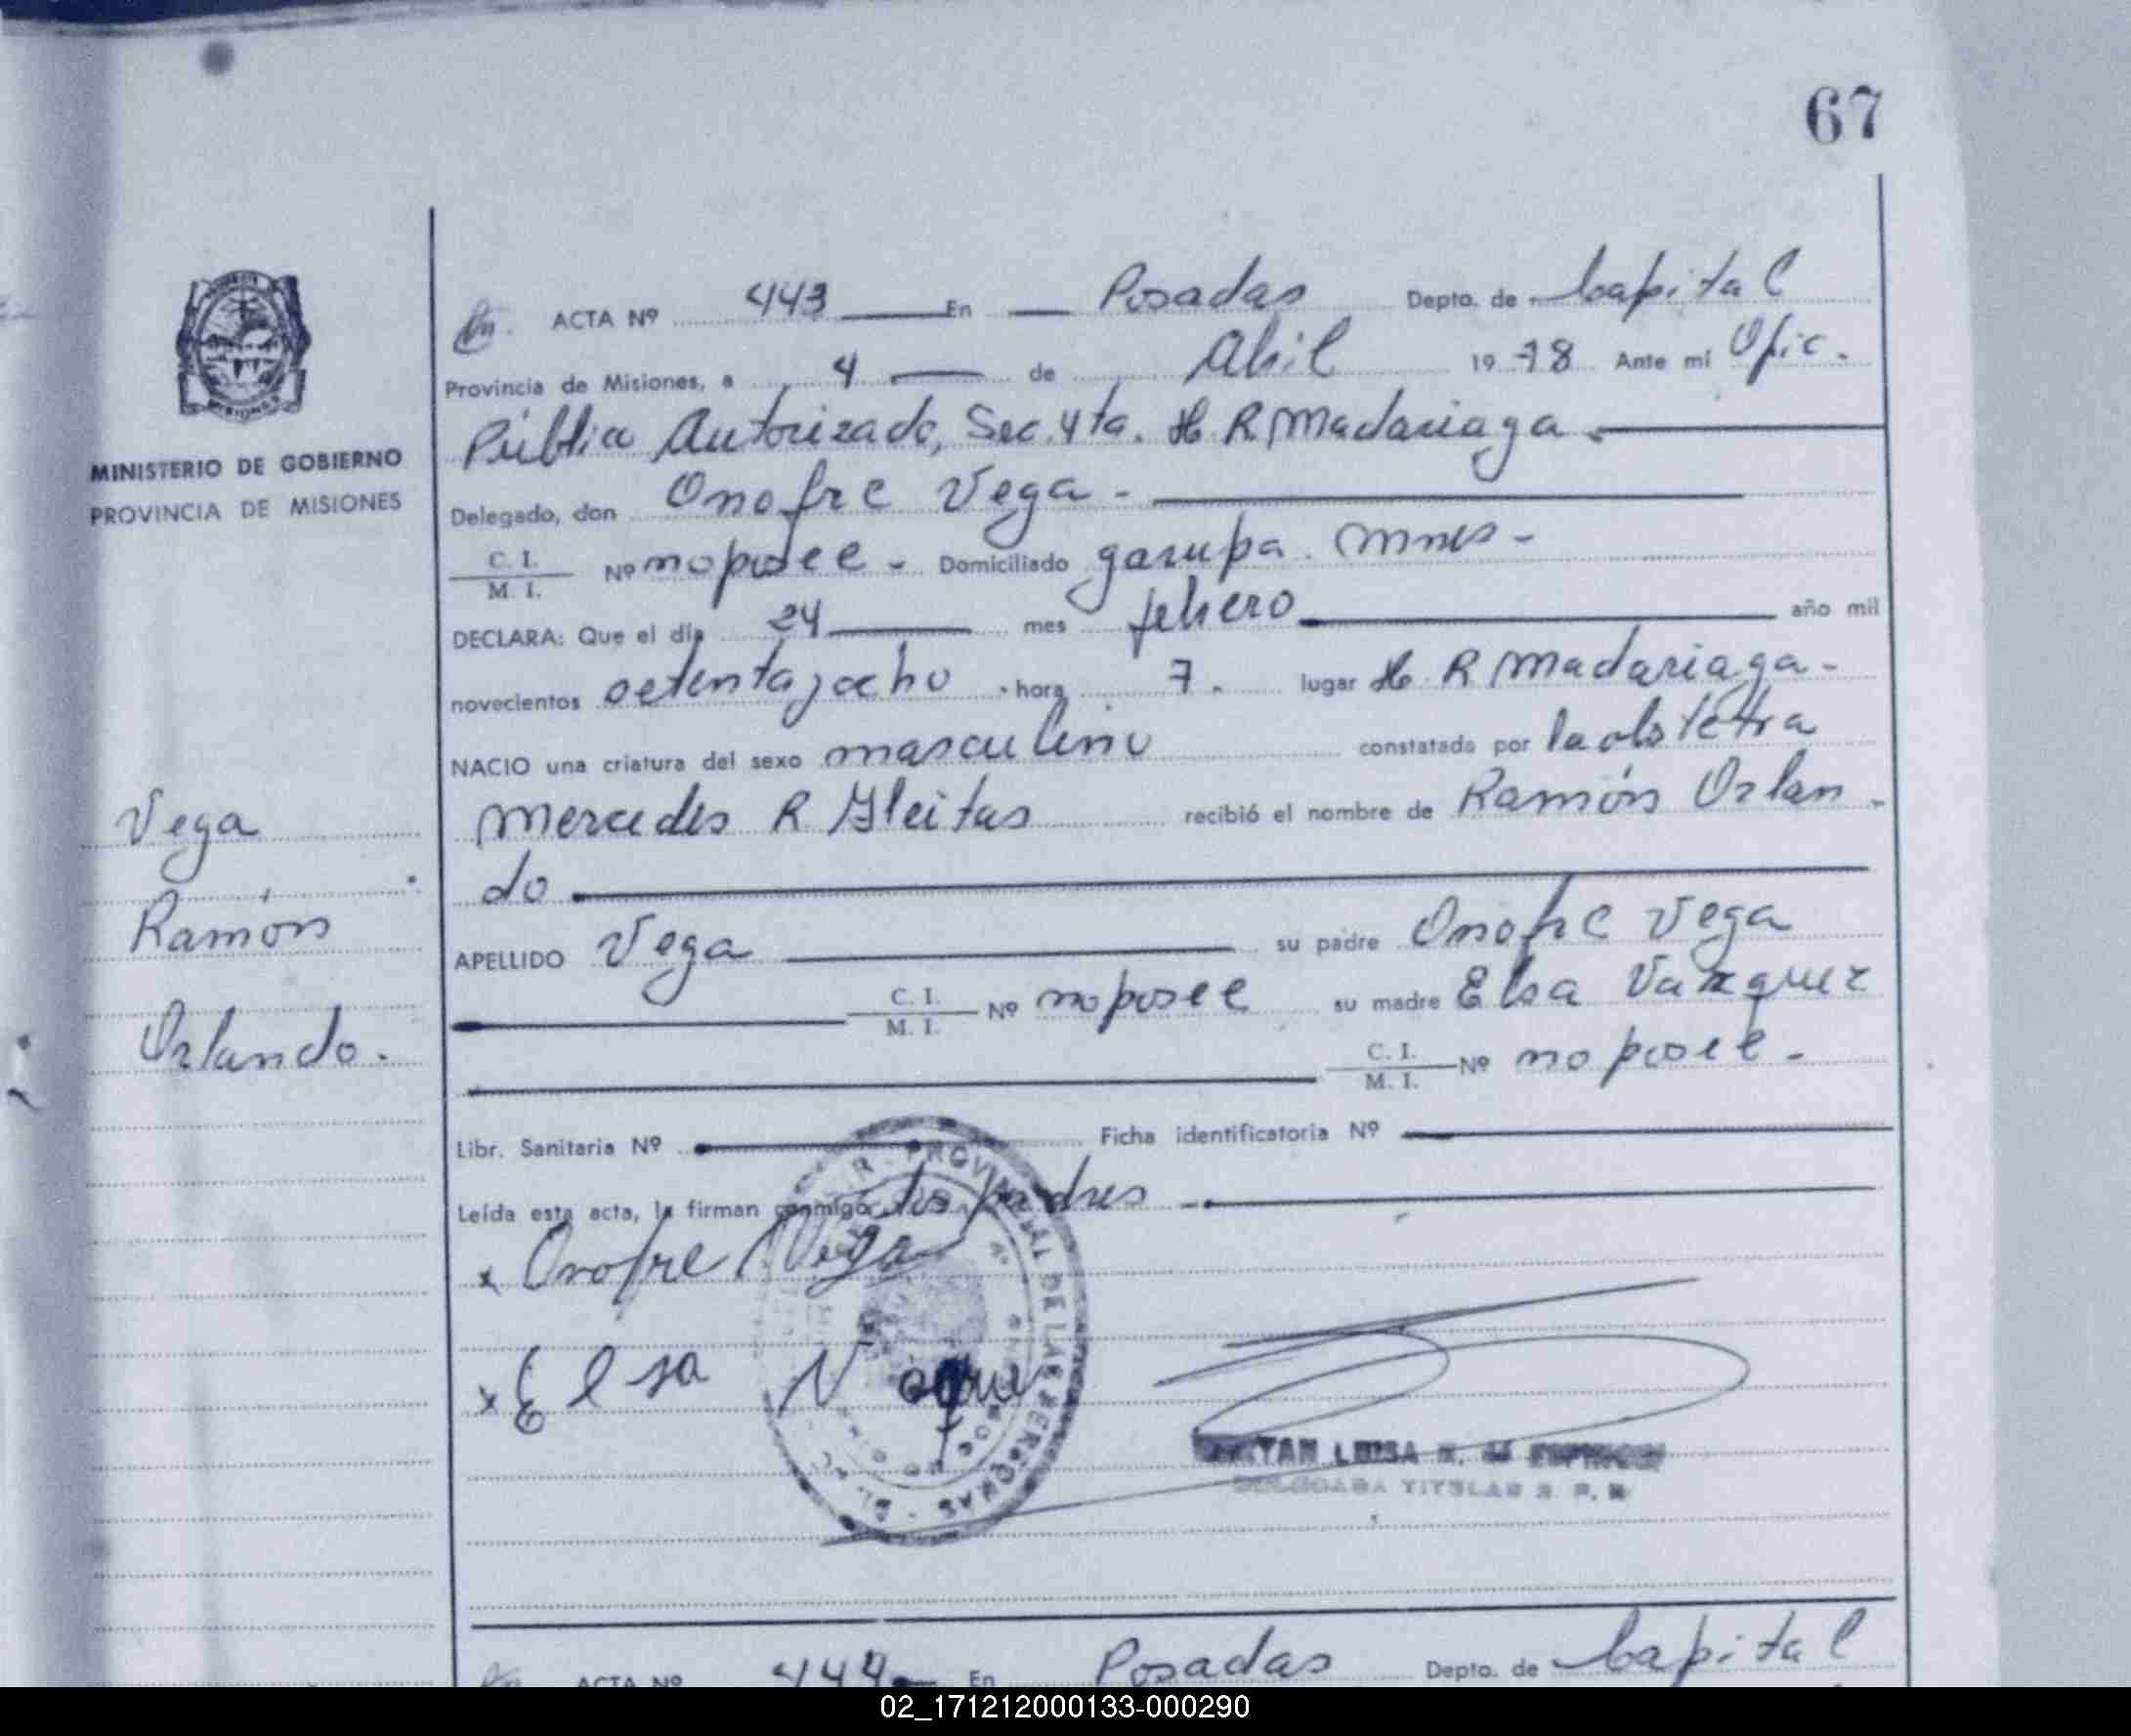 67
ACTA Nº 443 En Posadas Depto. de Capital
Provincia de Misiones, a 4 de Abril 1978 Ante mi Ofic.
Público Autorizado, Sec. 4ta. H. R Madariaga.
Delegado, don Onofre Vega -
C. I.
M. I.
Nº no posee - Domiciliado garupa. Mnes -
DECLARA: Que el día 24 mes febrero año mil
novecientos setenta y ocho . hora 7. lugar H. R Madariaga -
MINISTERIO DE GOBIERNO
PROVINCIA DE MISIONES
NACIO una criatura del sexo masculino constatada por la obstetra
Mercedes R Gleitas recibió el nombre de Ramón Orlan -
do
APELLIDO Vega su padre Onofre Vega
C. I.
M. I.
Nº no posee su madre Elsa Vazquez
C. I.
M. I.
Nº no posee -
Vega
Ramón
Orlando.
Libr. Sanitaria Nº Ficha identificatoria Nº
Leída esta acta, la firman conmigo los padres -
x Onofre Vega
x Elsa
PROVINCIAL DE LAS PERSONAS
LUISA
TITULAR R. P.
ACTA Nº 444 En Posadas Depto. de Capital
02_171212000133-000290